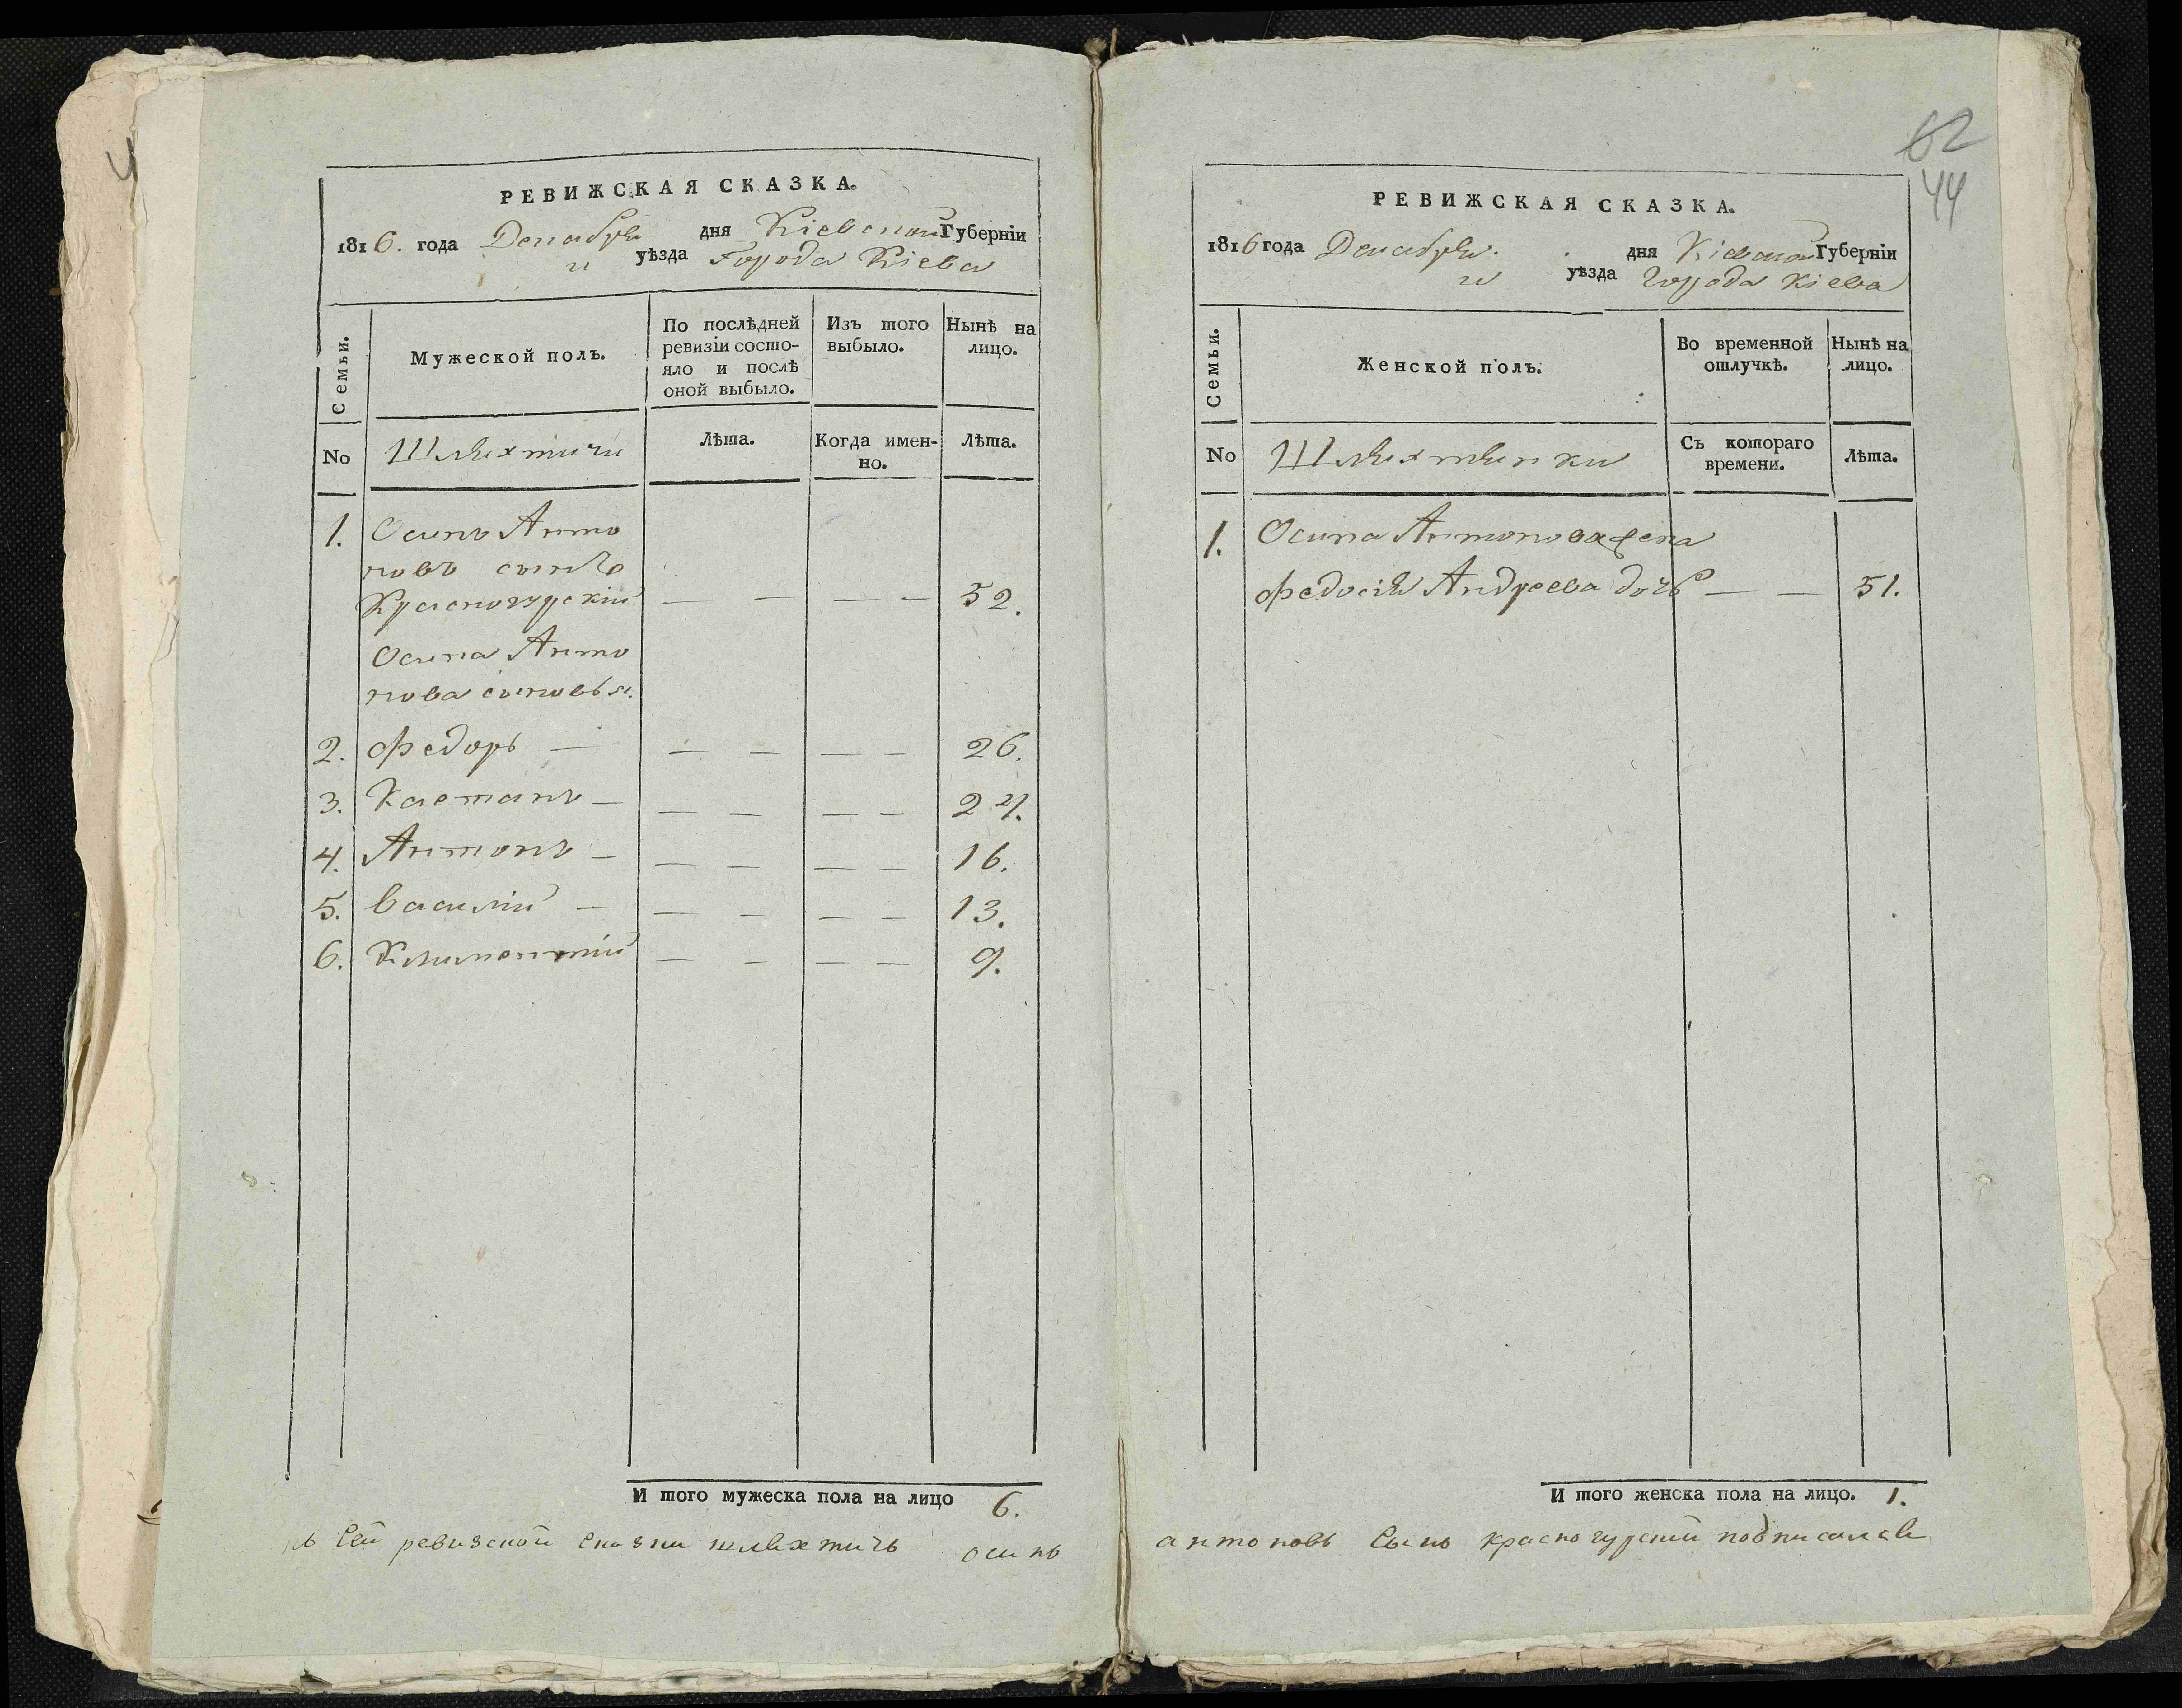 РЕВИЖСКАЯ СКАЗКА.
1816. года Декабря дня Кіевской Губерніи
и уѣзда Города Кіева
Семьи.
Мужеской полъ.
По послѣдней ревизіи состо-
яло и послѣ
оной выбыло.
Изъ того
выбыло.
Нынѣ на
лицо.
No
Шляхтичи
Лѣта.
Когда имен-
но.
Лѣта.
1. Осипъ Анто
новъ сынъ
Красногурскій — — — — 52.
Осипа Анто
нова сыновья.
2. Федоръ — — — — — 26.
3. Каетанъ — — — — — 21.
4. Антонъ — — — — — 16.
5. Василій — — — — — 13.
6. Климентій — — — — 9.
И того мужеска пола на лицо 6.
Сей ревизской сказки шляхтичъ осипъ
62
44
РЕВИЖСКАЯ СКАЗКА.
1816 года Декабря. дня Кіевской Губерніи
и уѣзда Города Кіева
Семьи.
Женской полъ.
Во временной
отлучкѣ.
Нынѣ на
лицо.
No
Шляхтянки
Съ котораго
времени.
Лѣта.
1. Осипа Антонова жена
Федосія Андреева дочь — — 51.
И того женска пола на лицо. 1.
антоновъ Сынъ красногурский подписался